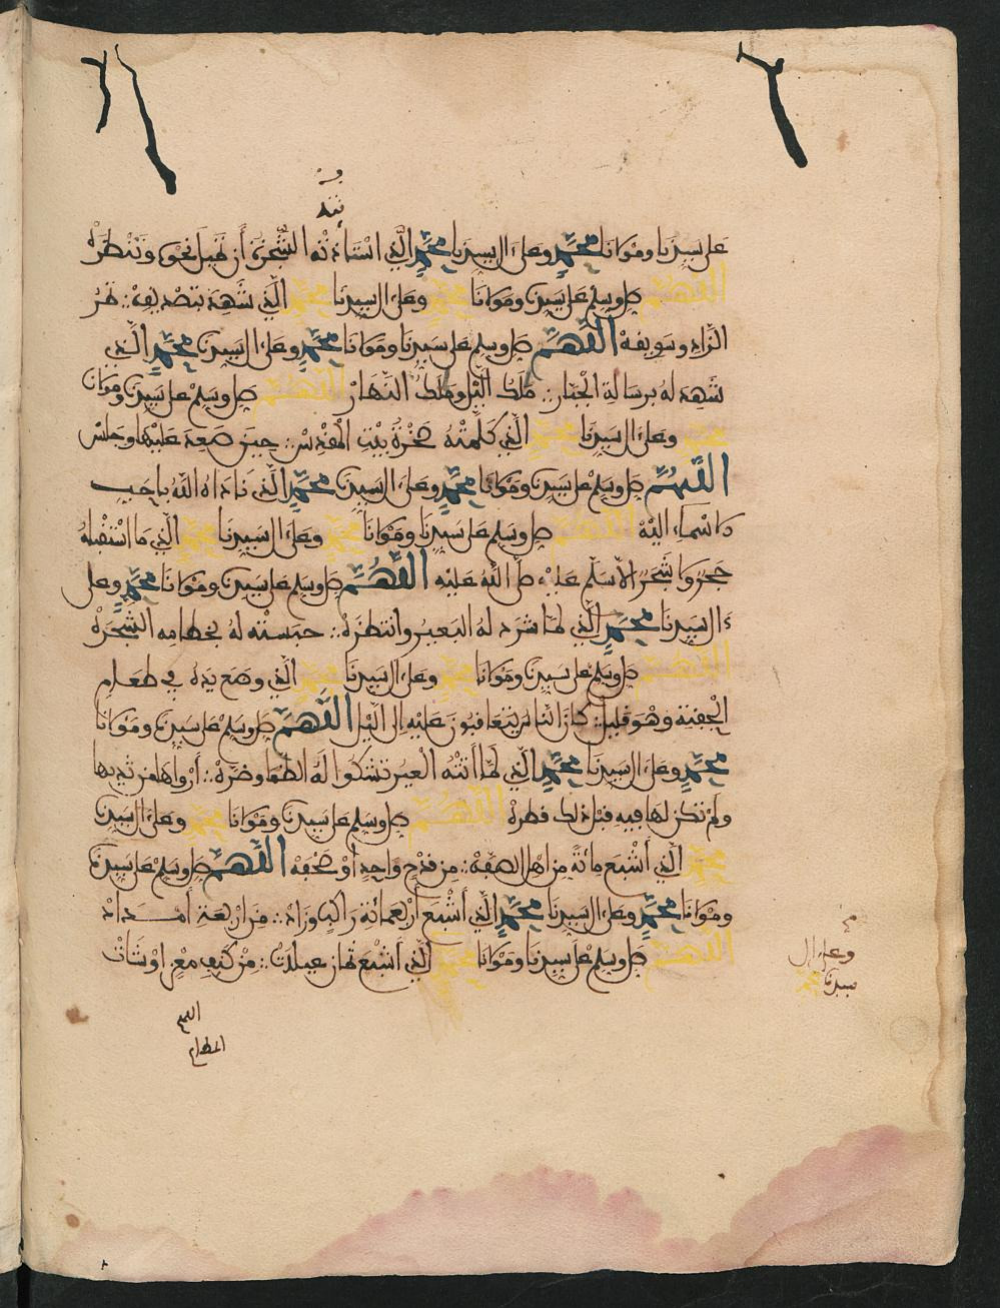 على سيدنا ومولانا محمد وعلى ال سيدنا محمد الذي استاذنته الشجرة أن تقبل نحوه وتنظره
اللهم صل وسلم على سيدنا ومولانا محمد وعلى ال سيدنا محمد الذي شهد بتصديقه
الزاد وسويقه اللهم صل وسلم على سيدنا ومولانا محمد وعلى ال سيدنا محمد الذي
شهد له برسالة الجبار ملك اليل وملك النهار اللهم صل وسلم على سيدنا ومولانا
محمد وعلى ال سيدنا محمد الذي كلمته صخرة بيت المقدس حين صعد عليها وجلس
اللهم صل وسلم على سيدنا ومولانا محمد وعلى ال سيدنا محمد الذي ناداه الله باحب
الاسماء اليه اللهم صل وسلم على سيدنا ومولانا محمد وعلى ال سيدنا محمد الذي ما استقبله
حجر ولا شجر الا سلم عليه صلى الله عليه اللهم صل وسلم على سيدنا ومولانا محمد وعلى
ءال سيدنا محمد الذي لما شرد له البعير وانتظره حبسته له بخطامه الشجرة
اللهم صل وسلم على سيدنا ومولانا محمد وعلى ال سيدنا محمد الذي وضع يده في طعام
الجفنة وهو قليل كان الناس يتعاقبون عليه الى اليل اللهم صل وسلم على سيدنا ومولانا
محمد وعلى ال سيدنا محمد الذي لما أتته العير تشكوا له الظما وضره أرواها من ثديها
ولم تكن لها فيه قبل ذلك قطره اللهم صل وسلم على سيدنا ومولانا محمد وعلى ال سيدنا
محمد الذي أشبع مائة من اهل الصفة من قدح واحد أو صحفه اللهم صل وسلم على سيدنا
ومولانا محمد وعلى ال سيدنا محمد الذي أشبع أربعمائة راكب وزاد من اربعة أمداد
اللهم صل وسلم على سيدنا ومولانا محمد الذي أشبع من كتف معز اوشات
وعلى ال
سيدنا محمد
اللهم